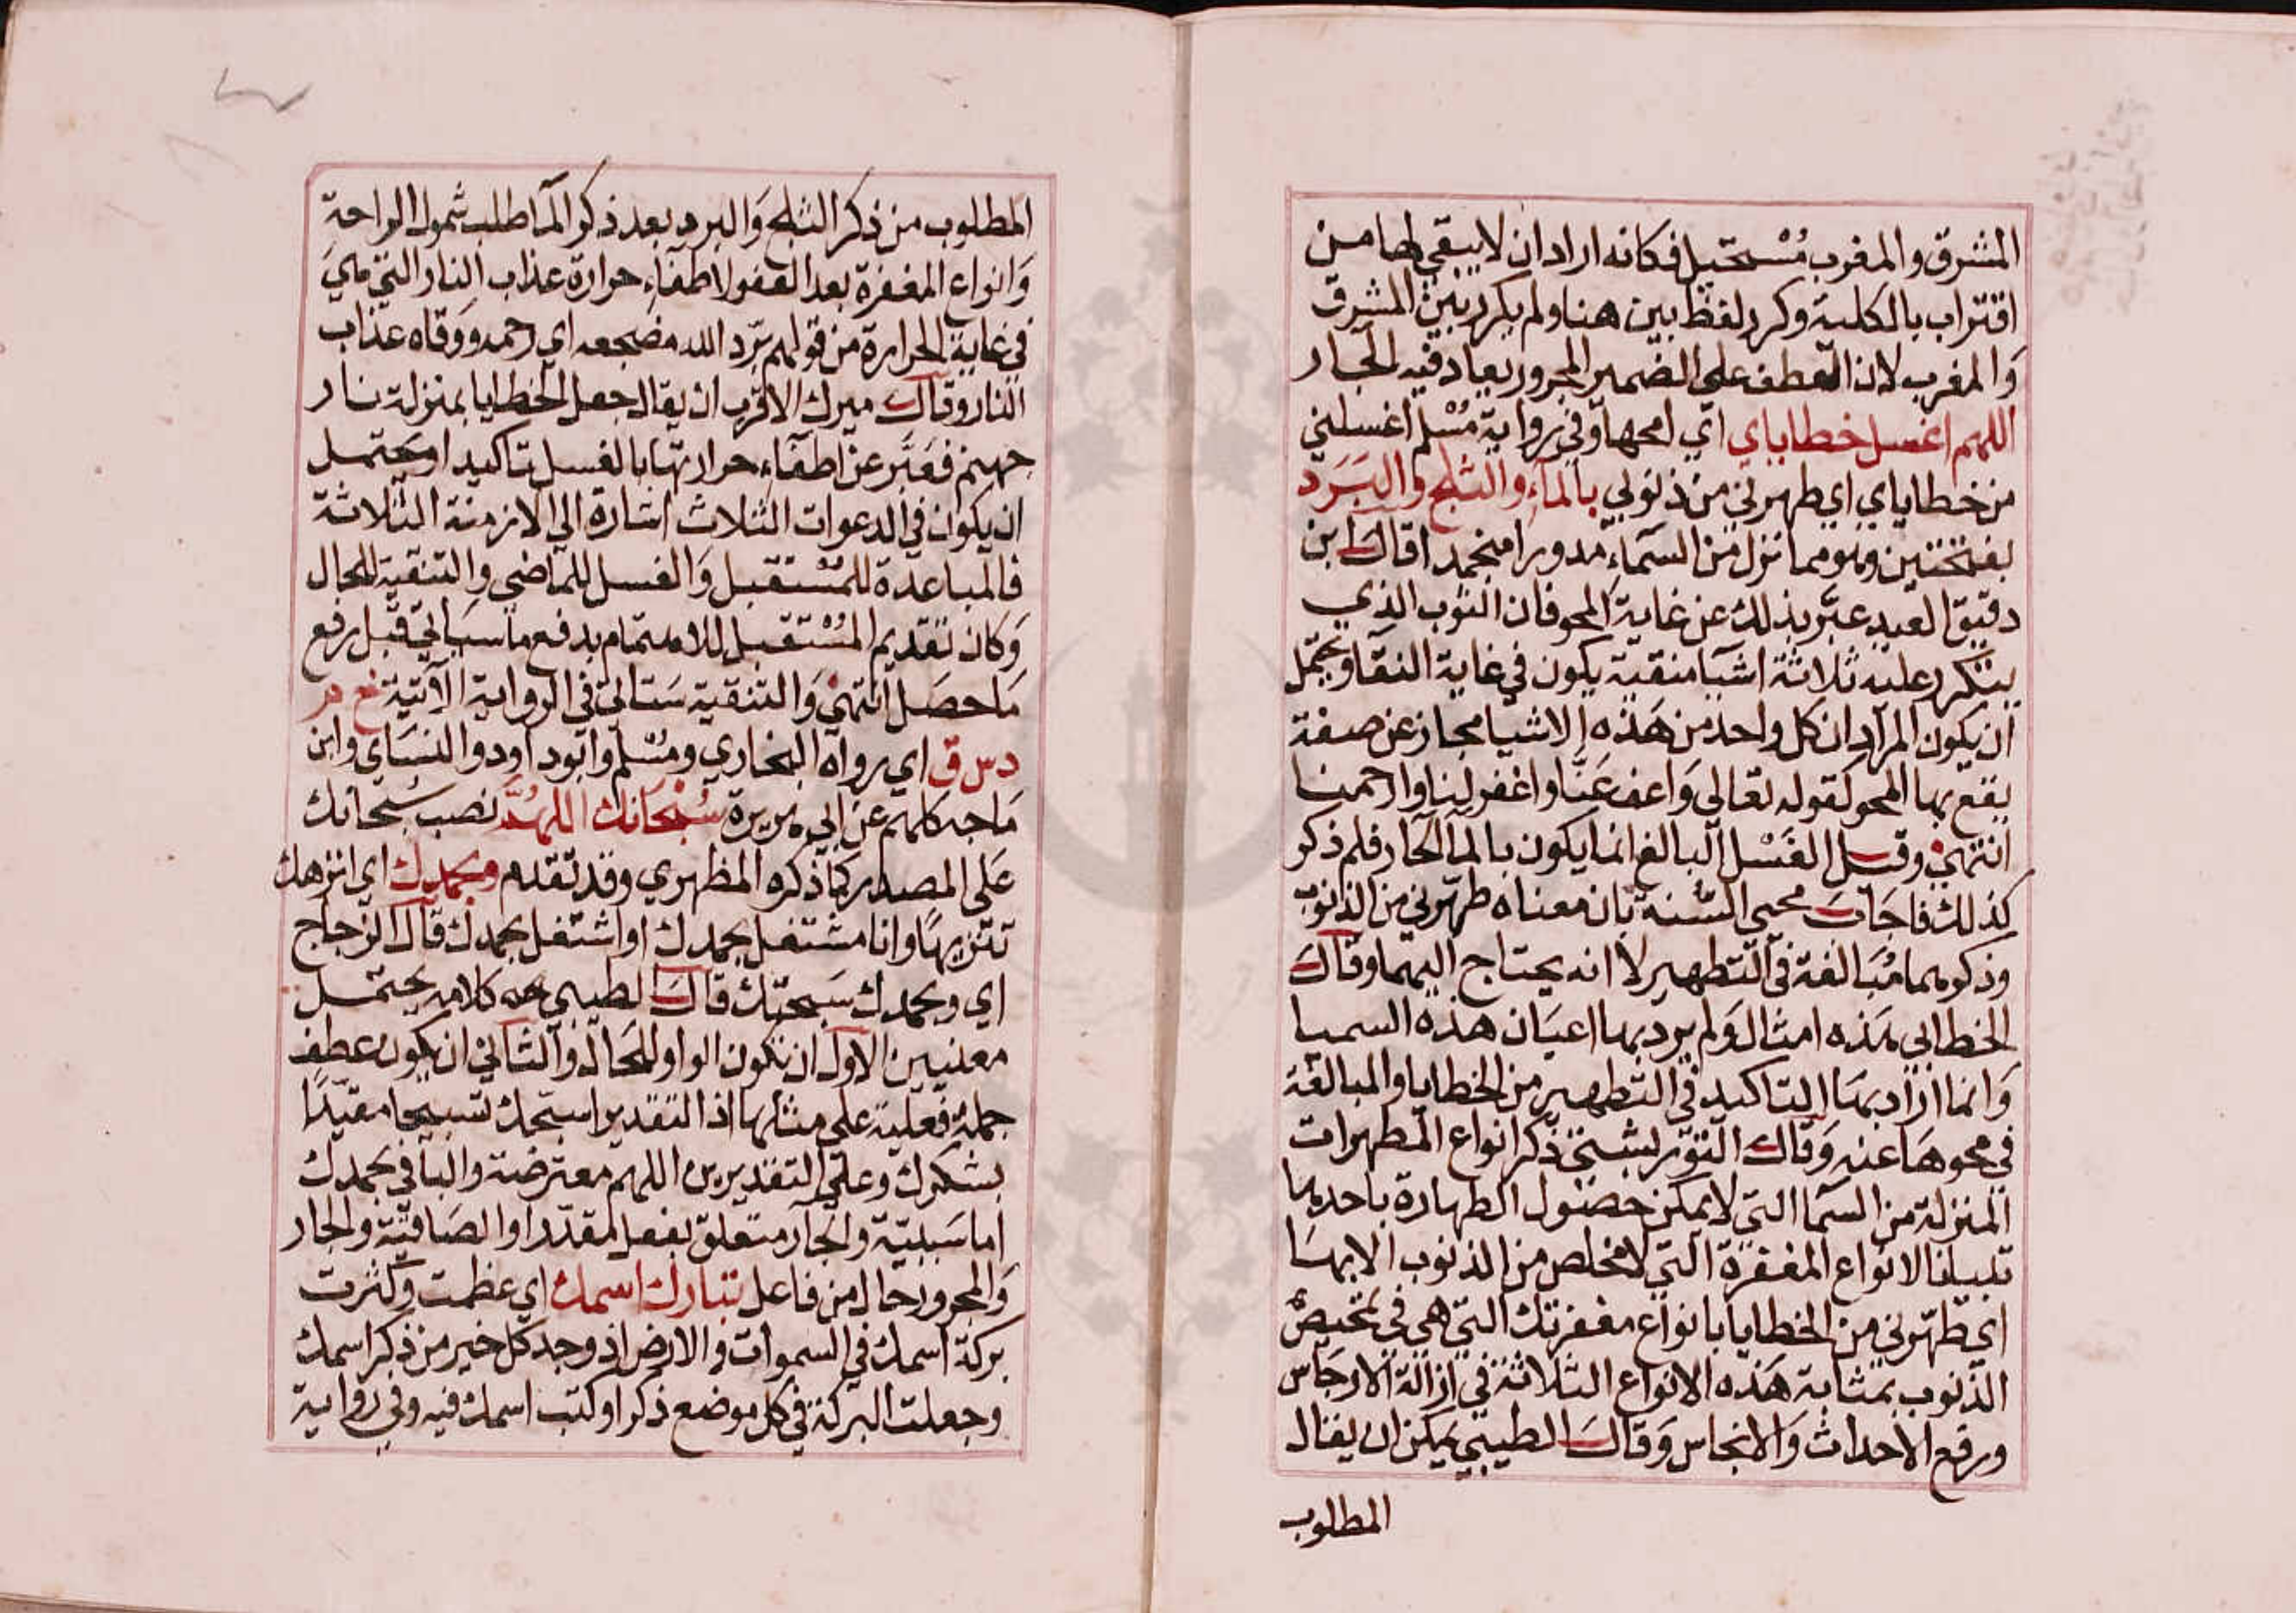 المشرق والمغرب مُسْتحيل فكانه اراد ان لا يبقي لها من
اقتراب بالكلية وكرر لفظ بين هنا ولم يكرر بين المشرق
وَالمغرب لان العطف علي الضمير المجرور يعاد فيه الجار
اللهم اغسل خطاياي اي امحها وفي رواية مُسْلم اغسلني
من خطاياي اي طهرني من ذنوبي بالمآءِ والثلج والبَرَد
بفتحتين وهو مما نزل من السمآء مدورا منجمدا قاك ابن
دقيق العيد عبَّر بذلك عن غاية المحو فان الثوب الذي
يتكرر عليه ثلاثة اشيآ منقية يكون في غاية النقآ ويحتمل
ان يكون المراد ان كل واحد من هَذه الاشيا مجاز عن صفة
يقع بها المحو كقوله تعالى وَاعف عَنَّا واغفر لنا وارحمنا
انتهيٰ وقيل الغَسْل البالغ انما يكون بالمآ الحار فلم ذكر
كذلك فاجَابَ محيي السُّنة بان معناه طهّرني من الذنوب
وذكرهما مُبَالغة في التطهير لا انه يحتاج اليهما وقاك
الخطابي هَذه امثال وَلم يرد بها اعيَان هذه السميا
وَانما ارَاد بهَا التاكيد في التطهير من الخطايا والمبالغة
في محوهَا عنه وَقاك التورپشتي ذكر انواع المطهرات
المنزلة من السمآ التي لا يمكن حصول الطهارة باحدها
تبييانا لانواع المغفرة التي لا مخلص من الذنوب الا بهَا
اي طهّرني من الخطايا بانواع مغفرتك التي هي في تمحيص
الذنوب بمثابة هَذه الانواع الثلاثة في ازالة الارجَاس
ورفع الاحداث وَالانجاس وَقاكَ الطيبي يمكن ان يقال
المطلوب
المطلوب من ذكر الثلج وَالبرد بعد ذكر المآ طلب شمول الراحة
وَانواع المغفرة بعد العفو لاطفآء حرارة عذاب النار التي هي
في غاية الحرارة من قولهم برّد الله مضجعه اي رحمه ووقاه عذاب
النار وقاك ميرك الاقرب ان يقال جعل الخطايا بمنزلة نار
جهنم فعَبَّر عن اطفآء حرارتها بالغسل تاكيدا ويحتمل
ان يكون في الدعوات الثلاث اشارة الي الازمنة الثلاثة
فالمباعدة للمُسْتقبل وَالغسل للماضي والتنقية للحال
وَكان تقديم المُسْتقبل للاهتمام بدفع ما سيَاتي قبل رفع
مَا حصَل انتهيٰ وَالتنقية سَتاتي في الرواية الآتية خ م
د س ق اي رواه البخاري ومُسْلم وابو داود والنسَاي وابن
مَاجه كلهم عن ابي هريرة سُبْحَانك اللهُمَّ نصب سُبحانك
عَلي المصدر كما ذكره المظهري وقد تقدم وبحمدك اي انزهك
تنزيهًا وانا مشتغل بحمدك او اشتغل بحمدك قاك الزجاج
اي وبحمدك سَبحتك قاك الطيبي هه كلامه يحتمل
معنيين الاول ان تكون الواو للحَال والثاني ان يكون عطف
جملة فعلية علي مثلها اذ التقدير اسبحك تسبيحا مقيدًا
بشكرك وعلي التقديرين اللهم معترضة والبا في بحمدك
اما سَببيّة والجار متعلق بفعل مقدّر او الصَاقيّة والجار
وَالمجرور حال من فاعل تبارك اسمك اي عظمت وكثرت
بركة اسمك في السموات والارض اذ وجد كل خير من ذكر اسمك
وجعلت البركة في كل موضع ذكر او كتب اسمك فيه وفي رواية